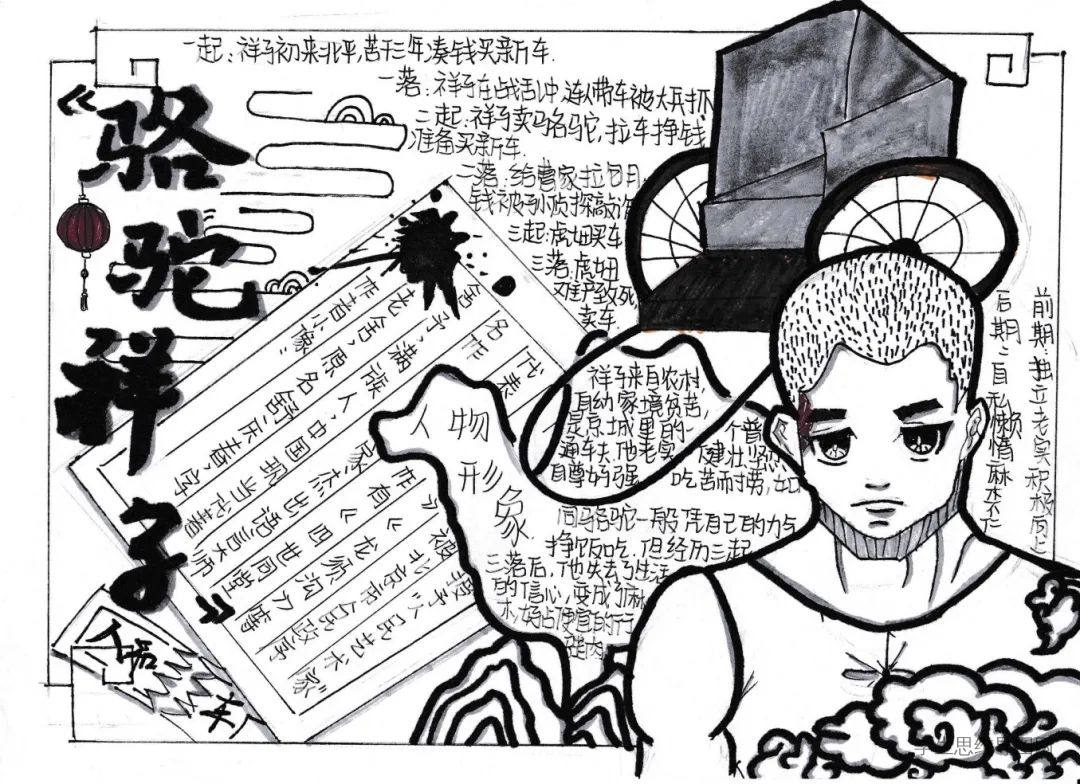 《骆驼祥子》
一起:祥子初来北平,苦干三年,凑钱买新车.
一落:祥子在战乱中,连人带车被大兵抓
二起:祥子卖骆驼,拉车挣钱
准备买新车.
二落:给曹家拉包月,
钱被孙侦探
三起:虎妞买车
三落:虎妞
难产致死,
卖车.
作者小像:
老舍,原名舒庆春,字
舍予,满族人,中国现当代著
名作家,杰出语言大师
代表作有《四世同堂》
《龙须沟》
人民艺术家
人物
形象
祥子来自农村,
自幼家境贫苦,
是京城里的一个普
通车夫,他老实、健壮、坚忍
自尊好强、吃苦而耐劳,
同骆驼一般凭自己的力气
挣饭吃.但经历三起
三落后,他失去了生活
的信心,变成了麻
木,好占便宜的行
尸走肉
前期:独立老实积极向上
后期:自私懒惰麻木不仁